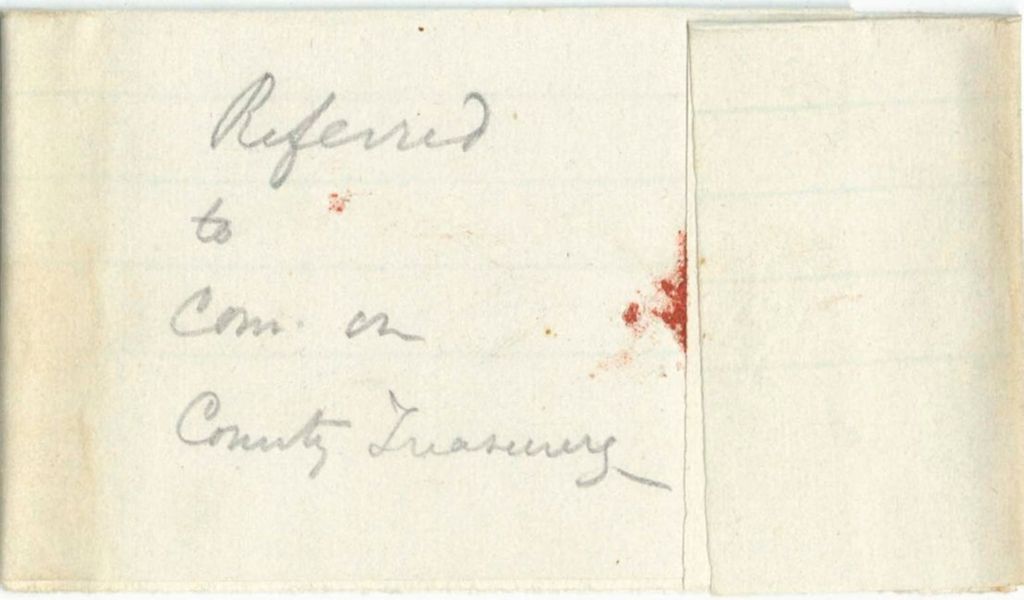 Referred
to
Com. on
County Treasury